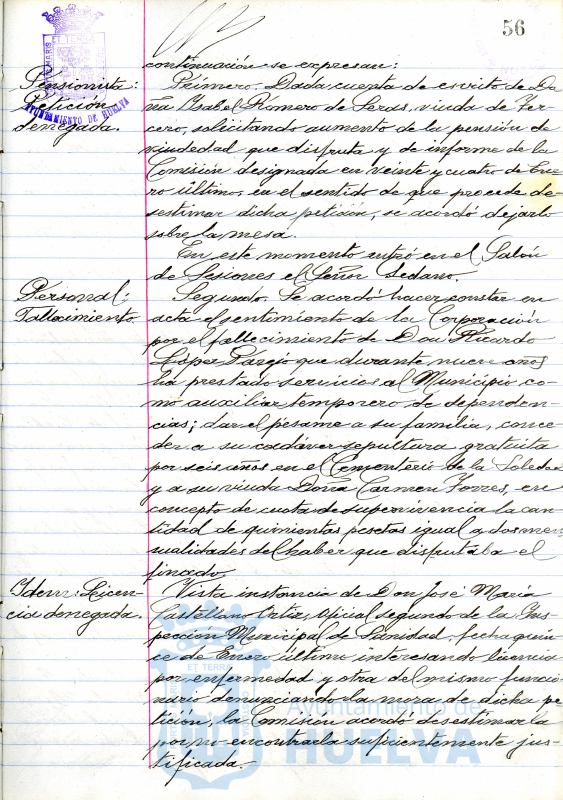 56
continuación se expresan:
Pensionista:
Petición
denegada.
AYUNTAMIENTO DE HUELVA
Primero. Dada cuenta de escrito de Do-
ña Isabel Romero de Seras, viuda de Ter-
cero, solicitando aumento de la pensión de
viudedad que disfruta y de informe de la
Comisión designada en veinte y cuatro de Ene-
ro último, en el sentido de que procede de-
sestimar dicha petición, se acordó dejarlo
sobre la mesa.
En este momento entró en el Salón
de Sesiones el Señor Sedano.
Personal:
Fallecimiento.
Segundo. Se acordó hacer constar en
acta el sentimiento de la Corporación
por el fallecimiento de Don Ricardo
López Parejo que durante nueve años
ha prestado servicios al Municipio co-
mo auxiliar temporero de dependen-
cias; dar el pésame a su familia, conce-
der a su cadáver sepultura gratuita
por seis años en el Cementerio de la Soledad
y a su viuda Doña Carmen Torres, en
concepto de cuota de supervivencia la can-
tidad de quinientas pesetas igual a dos men-
sualidades del haber que disfrutaba el
fincado.
Idem: Licen-
cia denegada.
Vista instancia de Don José María
Castellano Ortiz, Oficial segundo de la Ins-
pección Municipal de Sanidad, fecha quin-
ce de Enero último interesando licencia
por enfermedad y otra del mismo funcio-
nario denunciando la mora de dicha pe-
tición, la Comisión acordó desestimarla
por no encontrarla suficientemente jus-
tificada.
Ayuntamiento de
HUELVA